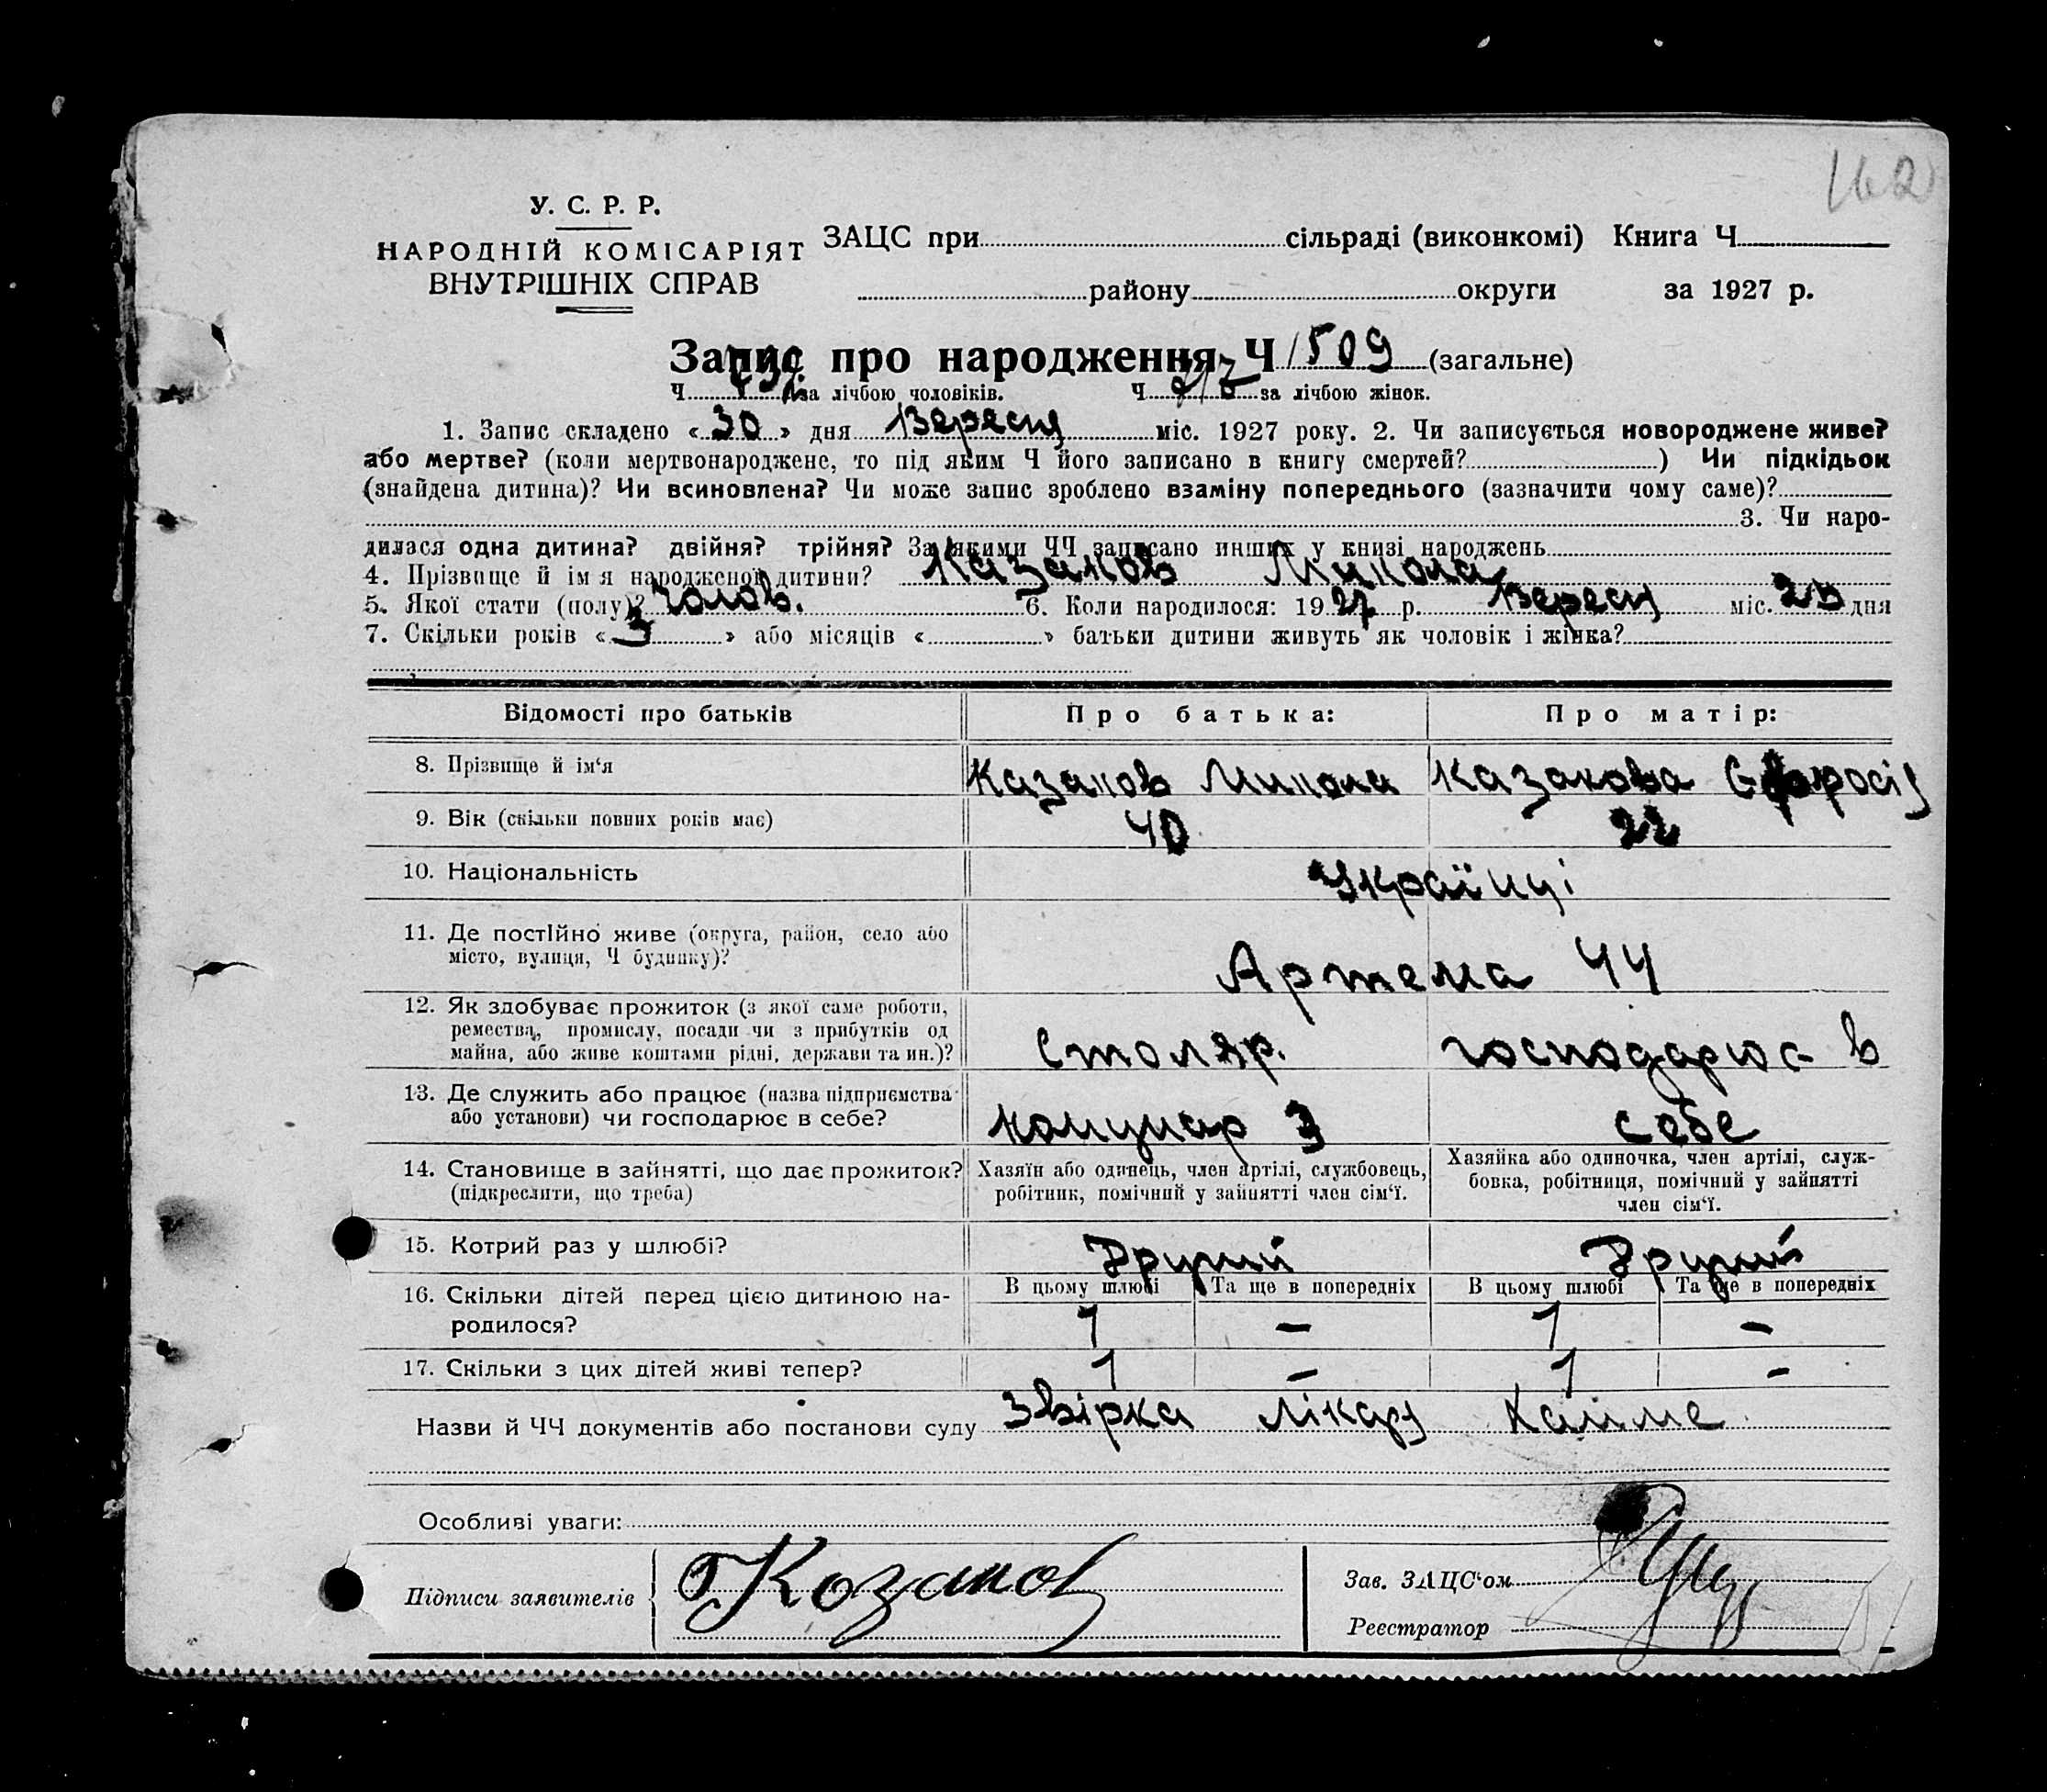 162
У. С. Р. Р.
НАРОДНІЙ КОМІСАРІЯТ
ВНУТРІШНІХ СПРАВ
ЗАЦС при сільраді (виконкомі) Книга Ч
району округи за 1927 р.
Запис про народження Ч 1509 (загальне)
Ч за лічбою чоловіків. Ч за лічбою жінок.
1. Запис складено «30» дня Вересня міс. 1927 року. 2. Чи записується новороджене живе?
або мертве? (коли мертвонароджене, то під яким Ч його записано в книгу смертей? ) Чи підкідьок
(знайдена дитина)? Чи всиновлена? Чи може запис зроблено взаміну попереднього (зазначити чому саме)?
3. Чи наро-
дилася одна дитина? двійня? трійня? За якими ЧЧ записано инших у книзі народжень
4. Прізвище й ім'я народженої дитини? Казаков Микола
5. Якої стати (полу)? Чолов. 6. Коли народилося: 1927 р. Вересня міс. дня
7. Скільки років «3» або місяців « » батьки дитини живуть як чоловік і жінка?
Відомості про батьків Про батька: Про матір:
8. Прізвище й ім'я Казаков Микола Казакова Єфросія
9. Вік (скільки повних років має) 40 22
10. Національність Українці
11. Де постійно живе (округа, район, село або
місто, вулиця, Ч будинку)? Артема 44
12. Як здобуває прожиток (з якої саме роботи,
ремества, промислу, посади чи з прибутків од
майна, або живе коштами рідні, держави та ин.)? Столяр. господарює в
13. Де служить або працює (назва підприємства
або установи) чи господарює в себе? комунар 3 себе
14. Становище в зайнятті, що дає прожиток?
(підкреслити, що треба)
Хазяїн або одинець, член артілі, службовець,
робітник, помічний у зайнятті член сім'ї.
Хазяйка або одиночка, член артілі, служ-
бовка, робітниця, помічний у зайнятті
член сім'ї.
15. Котрий раз у шлюбі? Другий Другий
В цьому шлюбі Та ще в попередніх В цьому шлюбі Та ще в попередніх
16. Скільки дітей перед цією дитиною на-
родилося? 1 – 1 –
17. Скільки з цих дітей живі тепер? 1 – 1 –
Назви й ЧЧ документів або постанови суду Звірка лікаря
Особливі уваги:
Підписи заявителів Козаков
Зав. ЗАЦС'ом
Реєстратор